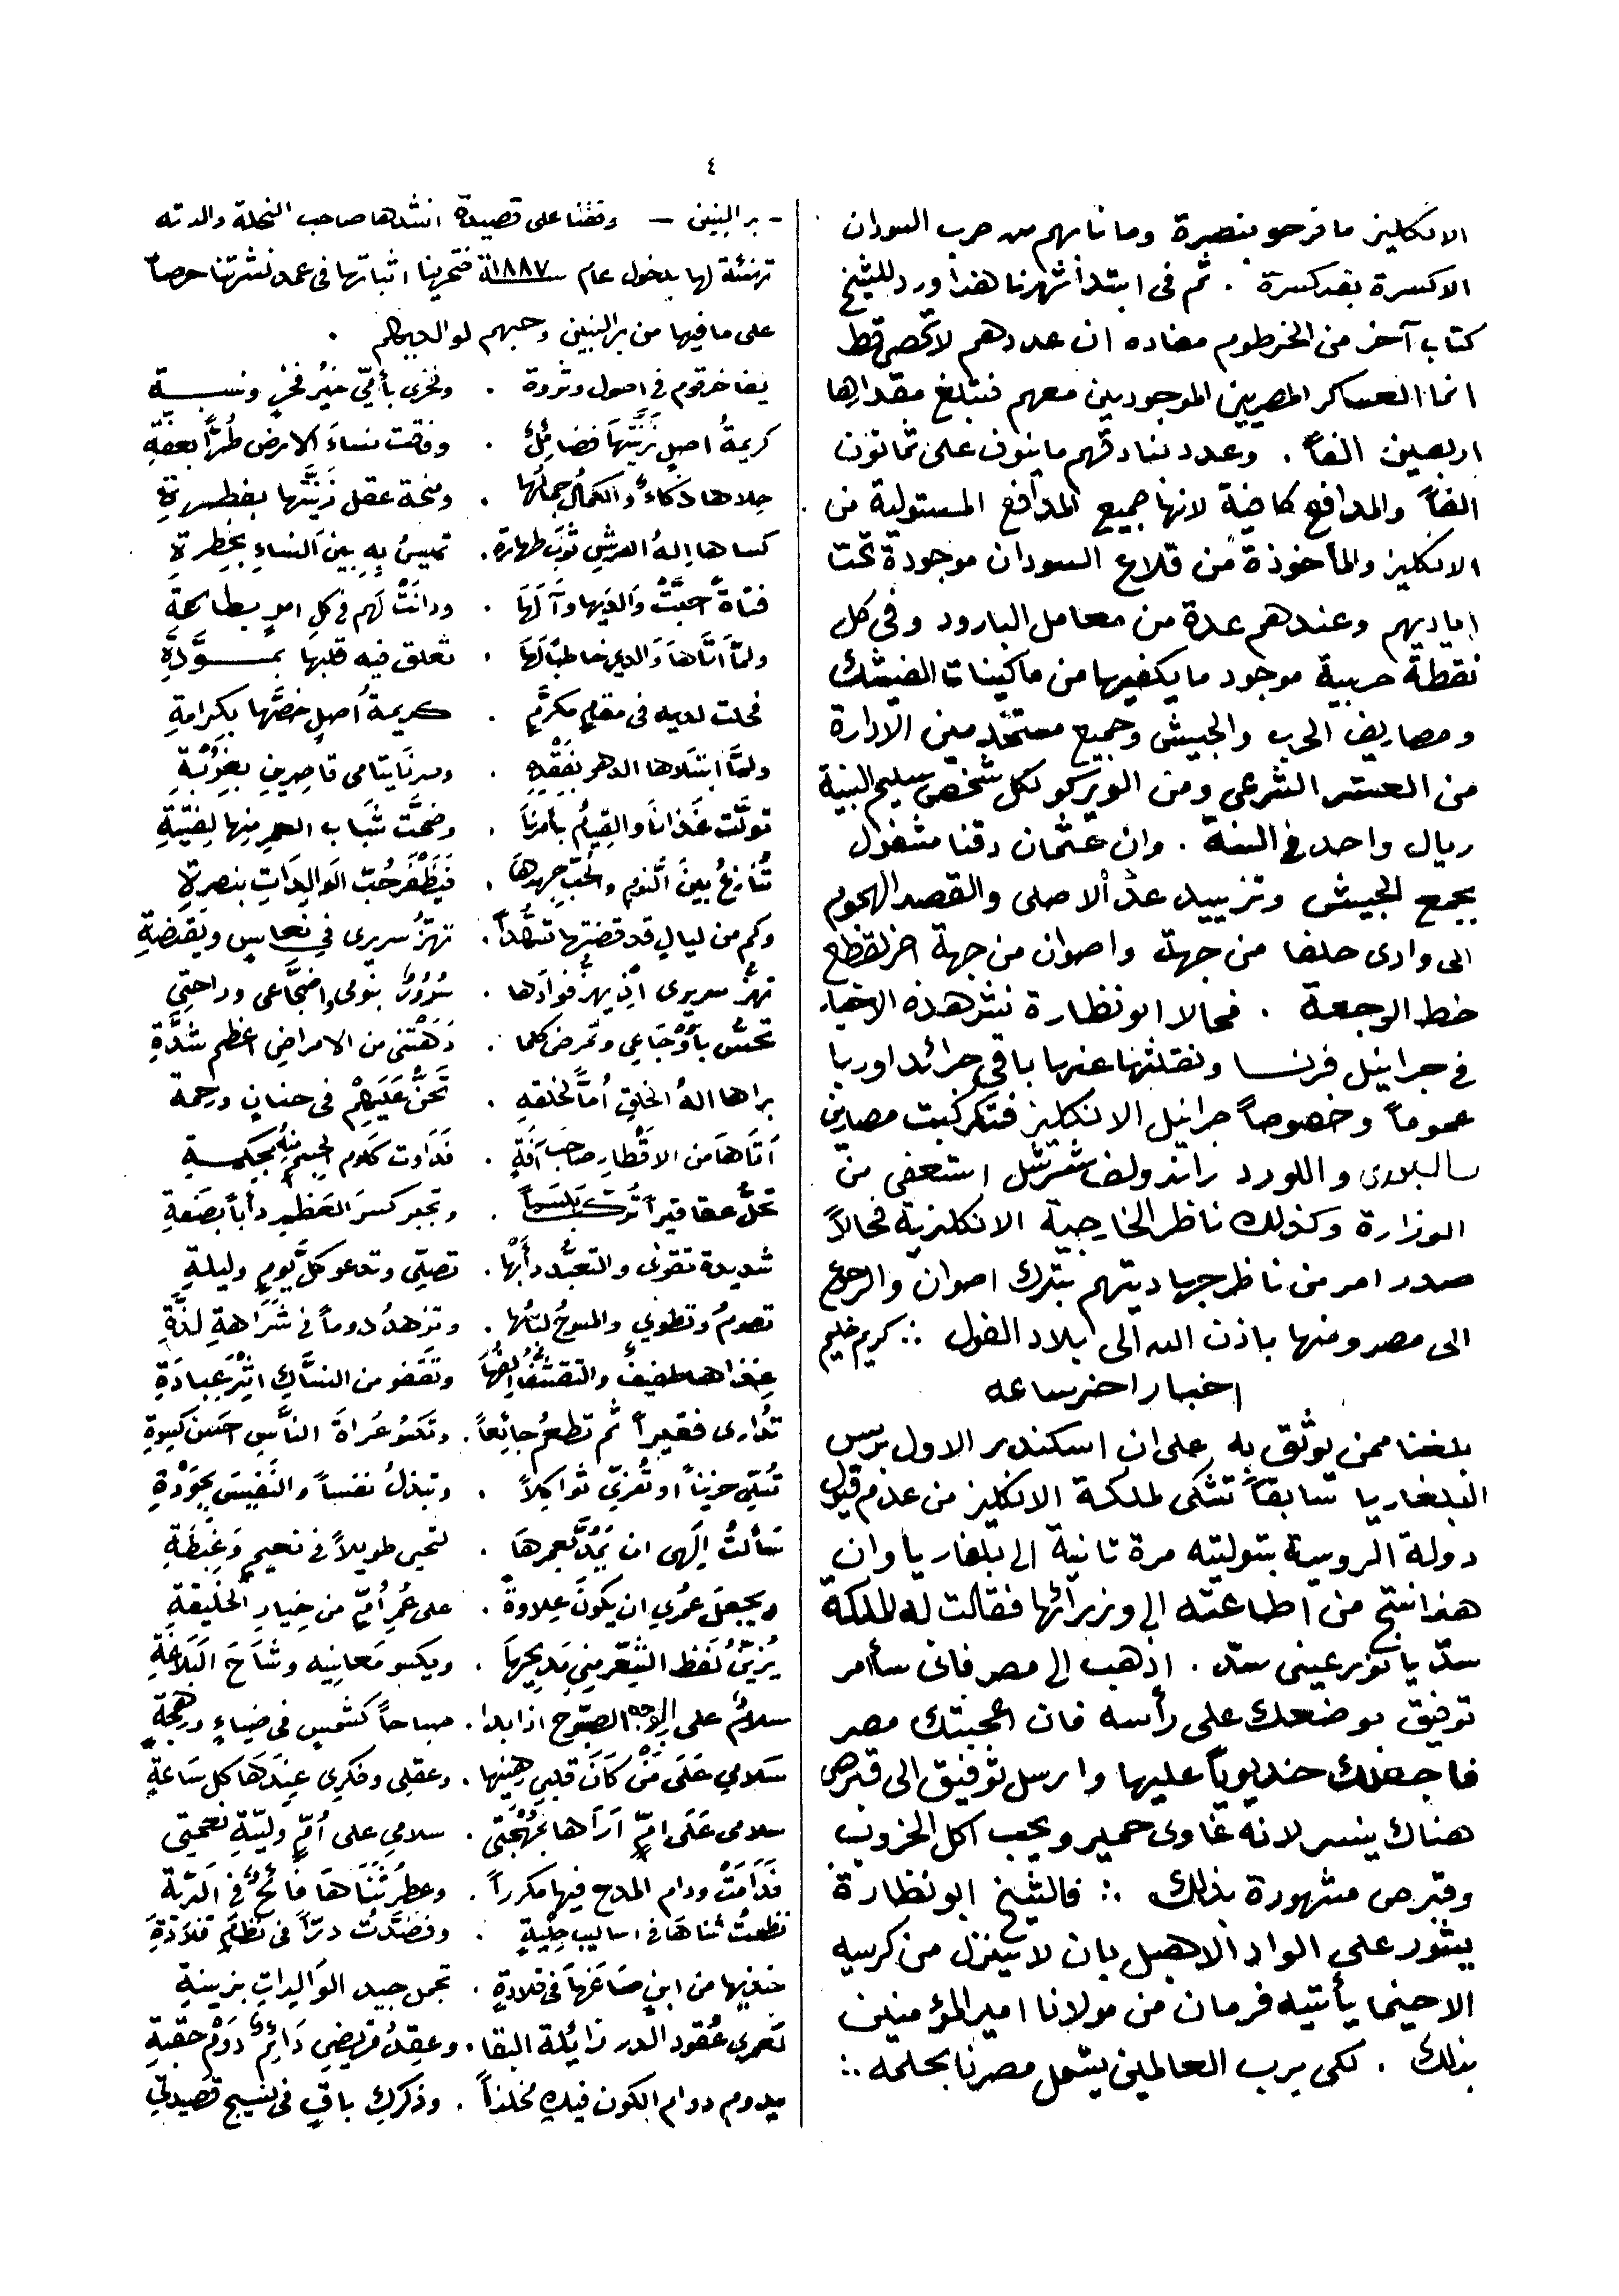 ٤
الانكليز ما فرحو بنصرة وما نابهم من حرب السودان
الا كسرة بعد كسرة . ثم فى ابتدأ شهرنا هذا ورد للشيخ
كتاب آخر من الخرطوم مفاده ان عددهم لا تحصى قط
انما العساكر المصريين الموجودين معهم فتبلغ مقدارها
اربعين الفاً . وعدد بنادقهم ما ينوف على ثمانون
الفاً والمدافع كافية لانها جميع المدافع المستولية من
الانكليز والمأخوذة من قلاع السودان موجودة تحت
اياديهم وعندهم عدة من معامل البارود وفي كل
نقطة حربية موجود ما يكفيها من ماكينات الفشك
ومصاريف الحرب والجيش وجميع مستخدمين الادارة
من العشر الشرعى ومن الويركو لكل شخص سليم البنية
ريال واحد فى السنة . وان عثمان دقنا مشغول
بجمع الجيش وتزييد عدّ الاصلى والقصد الهجوم
الى وادى حلفا من جهة واصوان من جهة اخر لقطع
خط الرجعة . فحالا ابو نظارة نشر هذه الاخبار
فى جرانيل فرنسا ونقلتها عنها باقى جرائد اوربا
عموماً وخصوصاً جرانيل الانكليز فتكركبت مصارين
سالسبورى واللورد راندولف شرشل استعفى من
الوزارة وكذلك ناظر الخارجية الانكليزية فحالاً
صدر امر من ناظر جهاديتهم بترك اصوان والرجوع
الى مصر ومنها باذن الله الى بلاد الفول ∴ كريم حليم
اخبار اخر ساعه
بلغنا ممن يوثق به على ان اسكندر الاول برنس
البلغاريا سابقاً تشكى لملكة الانكليز من عدم قبول
دولة الروسية بتوليته مرة تانية الى بلغاريا وان
هذا نتج من اطاعته الى وزرائها فقالت له الملكة
سدّ يا نور عينى سدّ . اذهب الى مصر فانى سأامر
توفيق بوضعك على رأسه فان اعجبتك مصر
فاجعلك خديوياً عليها وارسل توفيق الى قبرص
هناك ينسر لانه غاوى حمير ويحب اكل الخروب
وقبرص مشهورة بذلك ∴ فالشيخ ابو نظارة
يشور على الواد الاهبل بان لا ينزل من كرسيه
الا حينما يأتيه فرمان من مولانا امير المؤمنين
بذلك . لكى يرب العالمين يشمل مصرنا بحلمه ∴
- بر البنين - وقفنا على قصيدة انشدها صاحب النحلة والدته
تهنئة لها بدخول عام سنة ١٨٨٧ فتحرينا اثباتها فى عمد نشرتنا حرصاً
على ما فيها من بر البنين وحبهم لوالديهم .
يفاخر قوم فى اصول وثروة . وفخرى بأمّى خيرُ فخرٍ ونسبة
كريمةُ اصلٍ زيّنتها فضائلٌ . وفاقت نساءَ الارض طُرّاً بعفّةِ
جلاها ذكاءٌ والكمالُ جمالُها . ومنحة عقل زيّنتها بفطرةِ
كساها الهُ العرشِ ثوبَ طهارة . تميسُ بهِ بين النساءِ بخطرةِ
فتاةٌ احبّتْ والديها وآلَها . ودانتْ لهم فى كلِ امرٍ بطاعةِ
ولمّا اتاها والدى خاطباً لها . تعلق فيه قلبها بمودَّةِ
فحلت لديه فى مقامٍ مكرّمٍ . كريمةُ أصلٍ خصّها بكرامةِ
ولمّا ابتلاها الدهر بفقدِهِ . وصرنا يتامى قاصرين بغربةِ
تولّت غذانا والقيامُ بأمرنا . وضحّت شباب العمر منها لفتيةِ
تُنازعُ بين النومِ والحبّ جهدها . فيظفر حُبّ الوالداتِ بنصرةِ
وكم من ليالٍ قد قضتها تسهُّداً . تهزُّ سريرى فى نعاسٍ ويقضةِ
تهزُّ سريرى اذ يهزّ فؤادها . سرورٌ بنومى واضجاعى وراحتى
تحسّ بأوجاعى وتمرض كلما . دهتنى من الامراضِ اعظم شدّةِ
براها الهُ الخلقِ أمّاً لخلقهِ . تحنُّ عليهم فى حنانٍ ورحمة
اتاها من الاقطارِ صاحبُ آفةٍ . فداوت كلوم الجسم منه بحكمةِ
تحلُّ عقاقيراً تركّب بلسماً . وتجبر كسرَ العظيم دأباً بصنعةِ
شديدة تقوى والتعبّد دأبها . تصلّى وتدعو كلَّ يومٍ وليلةٍ
تصومُ وتطوي والمسوحُ لباسُها . وتزهدُ دوماً فى شراهةِ لذّةِ
غذاها طفيفٌ والتقشّف الفها . وتقفو من النسّاكِ اثرَ عبادةِ
تُدارى فقيراً ثم تطعمُ جائعاً . وتكسو عُراةَ الناسِ احسن كسوةِ
تُسلّى حزيناً او تُعزىّ ثواكلاً . وتبذلُ نفساً والنفيسَ بجودةِ
سألتُ الهى ان يمدّ بعمرها . لتحيى طويلاً فى نعيمٍ وغبطةِ
ويجعلَ عمرى ان يكونَ علاوةً . على عُمر أمّى من خيارِ الخليقةِ
يُزيّنُ لفظ الشعر منى بمديحها . ويكسو معانيه وشاحَ البلاغةِ
سلامٌ على الوجه الصبوح اذا بدا . صباحاً كشمسٍ فى ضياءٍ وبهجةٍ
سلامي على من كان قلبى رهينها . وعقلى وفكرى عندها كل ساعةِ
سلامى على امّ اراها بمهجتى . سلامى على أمّ وليّةِ نعمتى
فدامتْ ودام المدح فيها مكرراً . وعطرُ ثناها فائحٌ فى البريّة
نظمتُ ثناها فى اساليب حليةٍ . ونضّدتُ درّاً فى نظام قلادةِ
خذيها من ابنٍ صاغها فى قلادةٍ . تجمل جيد الوالداتِ بزينةِ
لعمرى عُقود الدر زائلة البقا . وعقدُ قريضى دائمٌ دوم حقبةِ
يدوم دوام الكون فيك مخلداً . وذكرك باقٍ فى نسيج قصيدتى